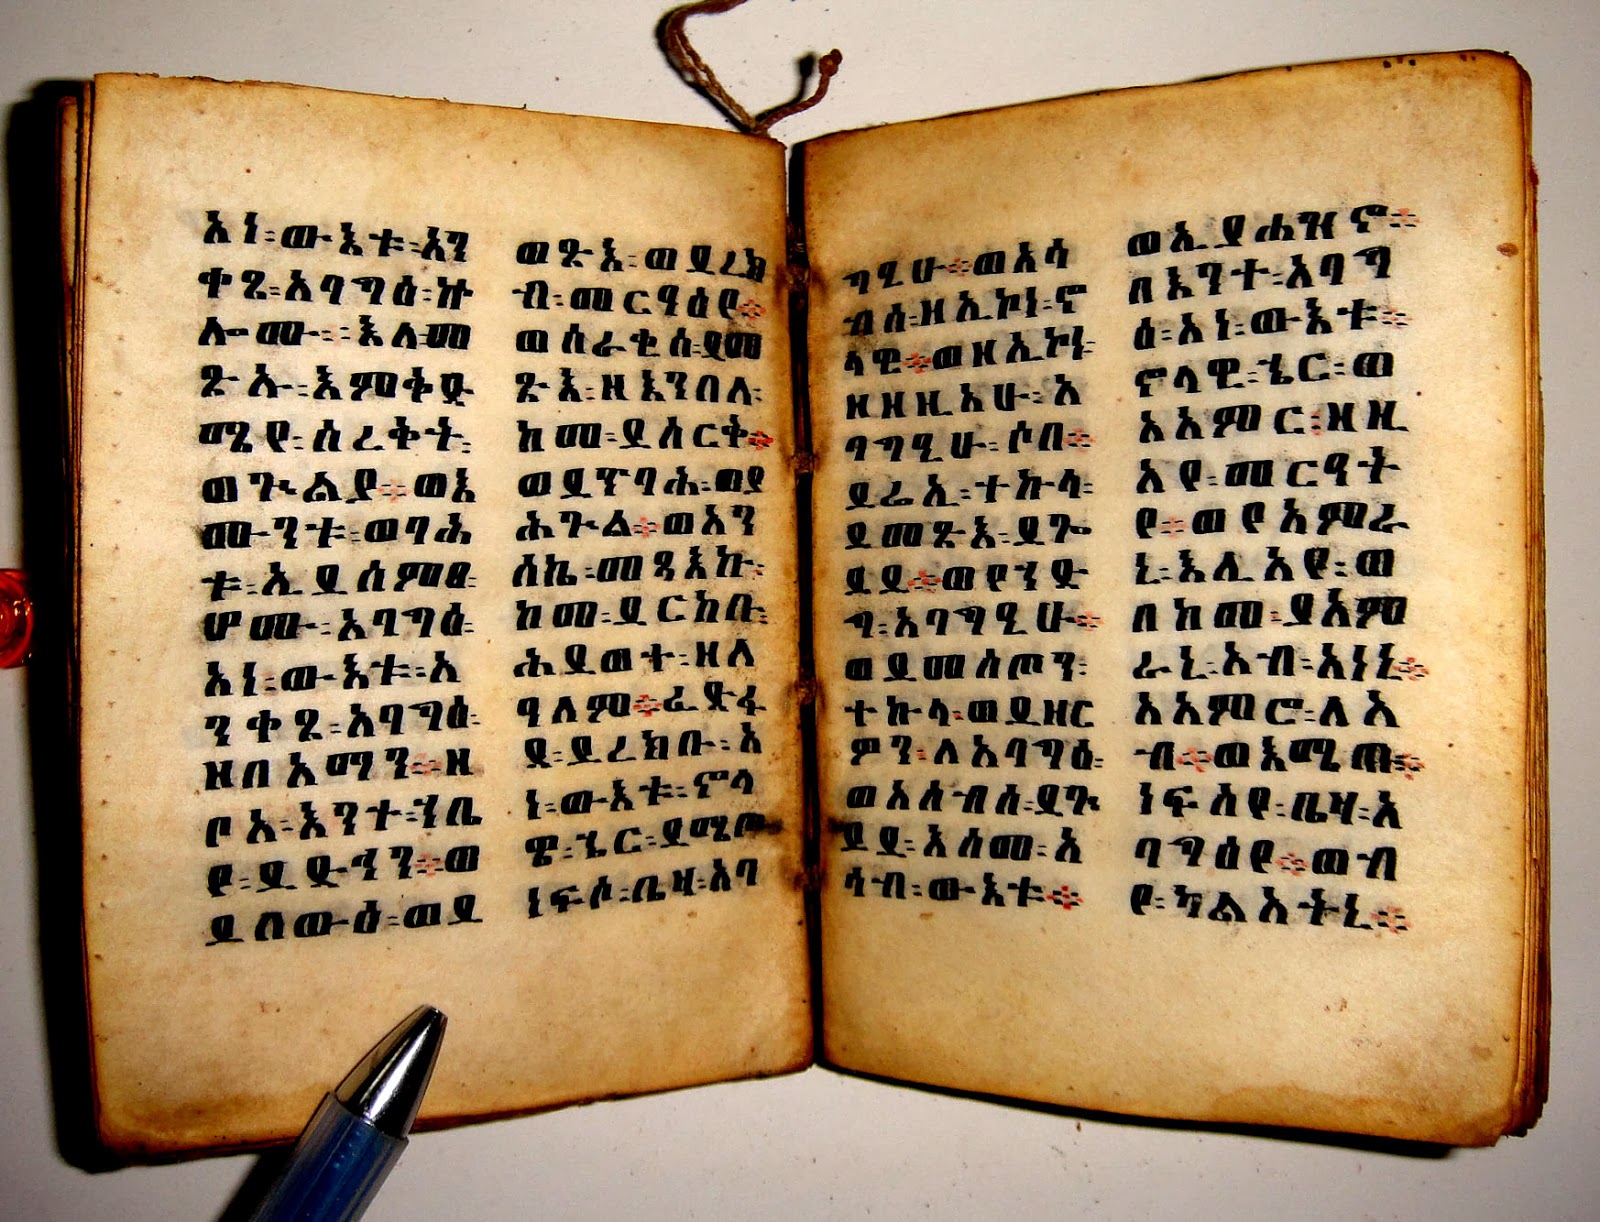 አነ፡ውእቱ፡አን
ቀጸ፡አባግዕ፡ኵ
ሎሙ፡እለ፡መ
ጽኡ፡እምቅድ
ሜየ፡ሰረቅት፡
ወጕልያ።ወእ
ሙንቱ፡ወባሕ
ቱ፡ኢይሰምዐ፡
ዎሙ፡አባግዕ፡
አነ፡ውእቱ፡አ
ንቀጸ፡አባግዕ፡
ዘበአማን።ዘ
ቦአ፡እንተ፡ኀቤ
የ፡ይድኅን።ወ
ይበውዕ፡ወይ
ወጽእ፡ወይረክ
ብ፡መርዓዕየ።
ወሰራቂሰ፡ይመ
ጽእ፡ዘእንበለ፡
ከመ፡ይሰርቅ።
ወይጥባሕ፡ወያ
ሕጕል።ወአን
ሰኬ፡መጻእኩ፡
ከመ፡ይርከቡ፡
ሕይወተ፡ዘለ
ዓለም።ፈድፋ
ደ፡ይረክቡ፡አ
ነ፡ውእቱ፡ኖላ
ዌ፡ኄር፡ይሜጡ
ነፍሶ፡ቤዛ፡አባ
ግዒሁ።ወአሳ
ብሰ፡ዘኢኮነ፡ኖ
ላዊ።ወዘኢኮነ
ዘዘዚአሁ፡አ
ባግዒሁ፡ሶበ።
ይሬኢ፡ተኩላ፡
ይመጽእ፡ይጐ
ይይ።ወየኀድ
ግ፡አባግዒሁ።
ወይመሰጦን፡
ተኩላ፡ወይዘር
ዎን፡ለአባግዕ፡
ወአሰብሰ፡ይጐ
ይይ፡እስመ፡አ
ሳብ፡ውእቱ።
ወኢያሐዝኖ።
በእንተ፡አባግ
ዕ፡አነ፡ውእቱ።
ኖላዊ፡ኄር፡ወ
አአምር፡ዘዚ
አየ፡መርዓት
የ።ወየአምራ
ኒ፡እሊአየ፡ወ
በከመ፡ያአም
ራኒ፡አብ፡አነኒ።
አአምሮ፡ለአ
ብ።ወእሜጡ።
ነፍስየ፡ቤዛ፡አ
ባግዕየ።ወብ
የ፡ካልአትኒ።